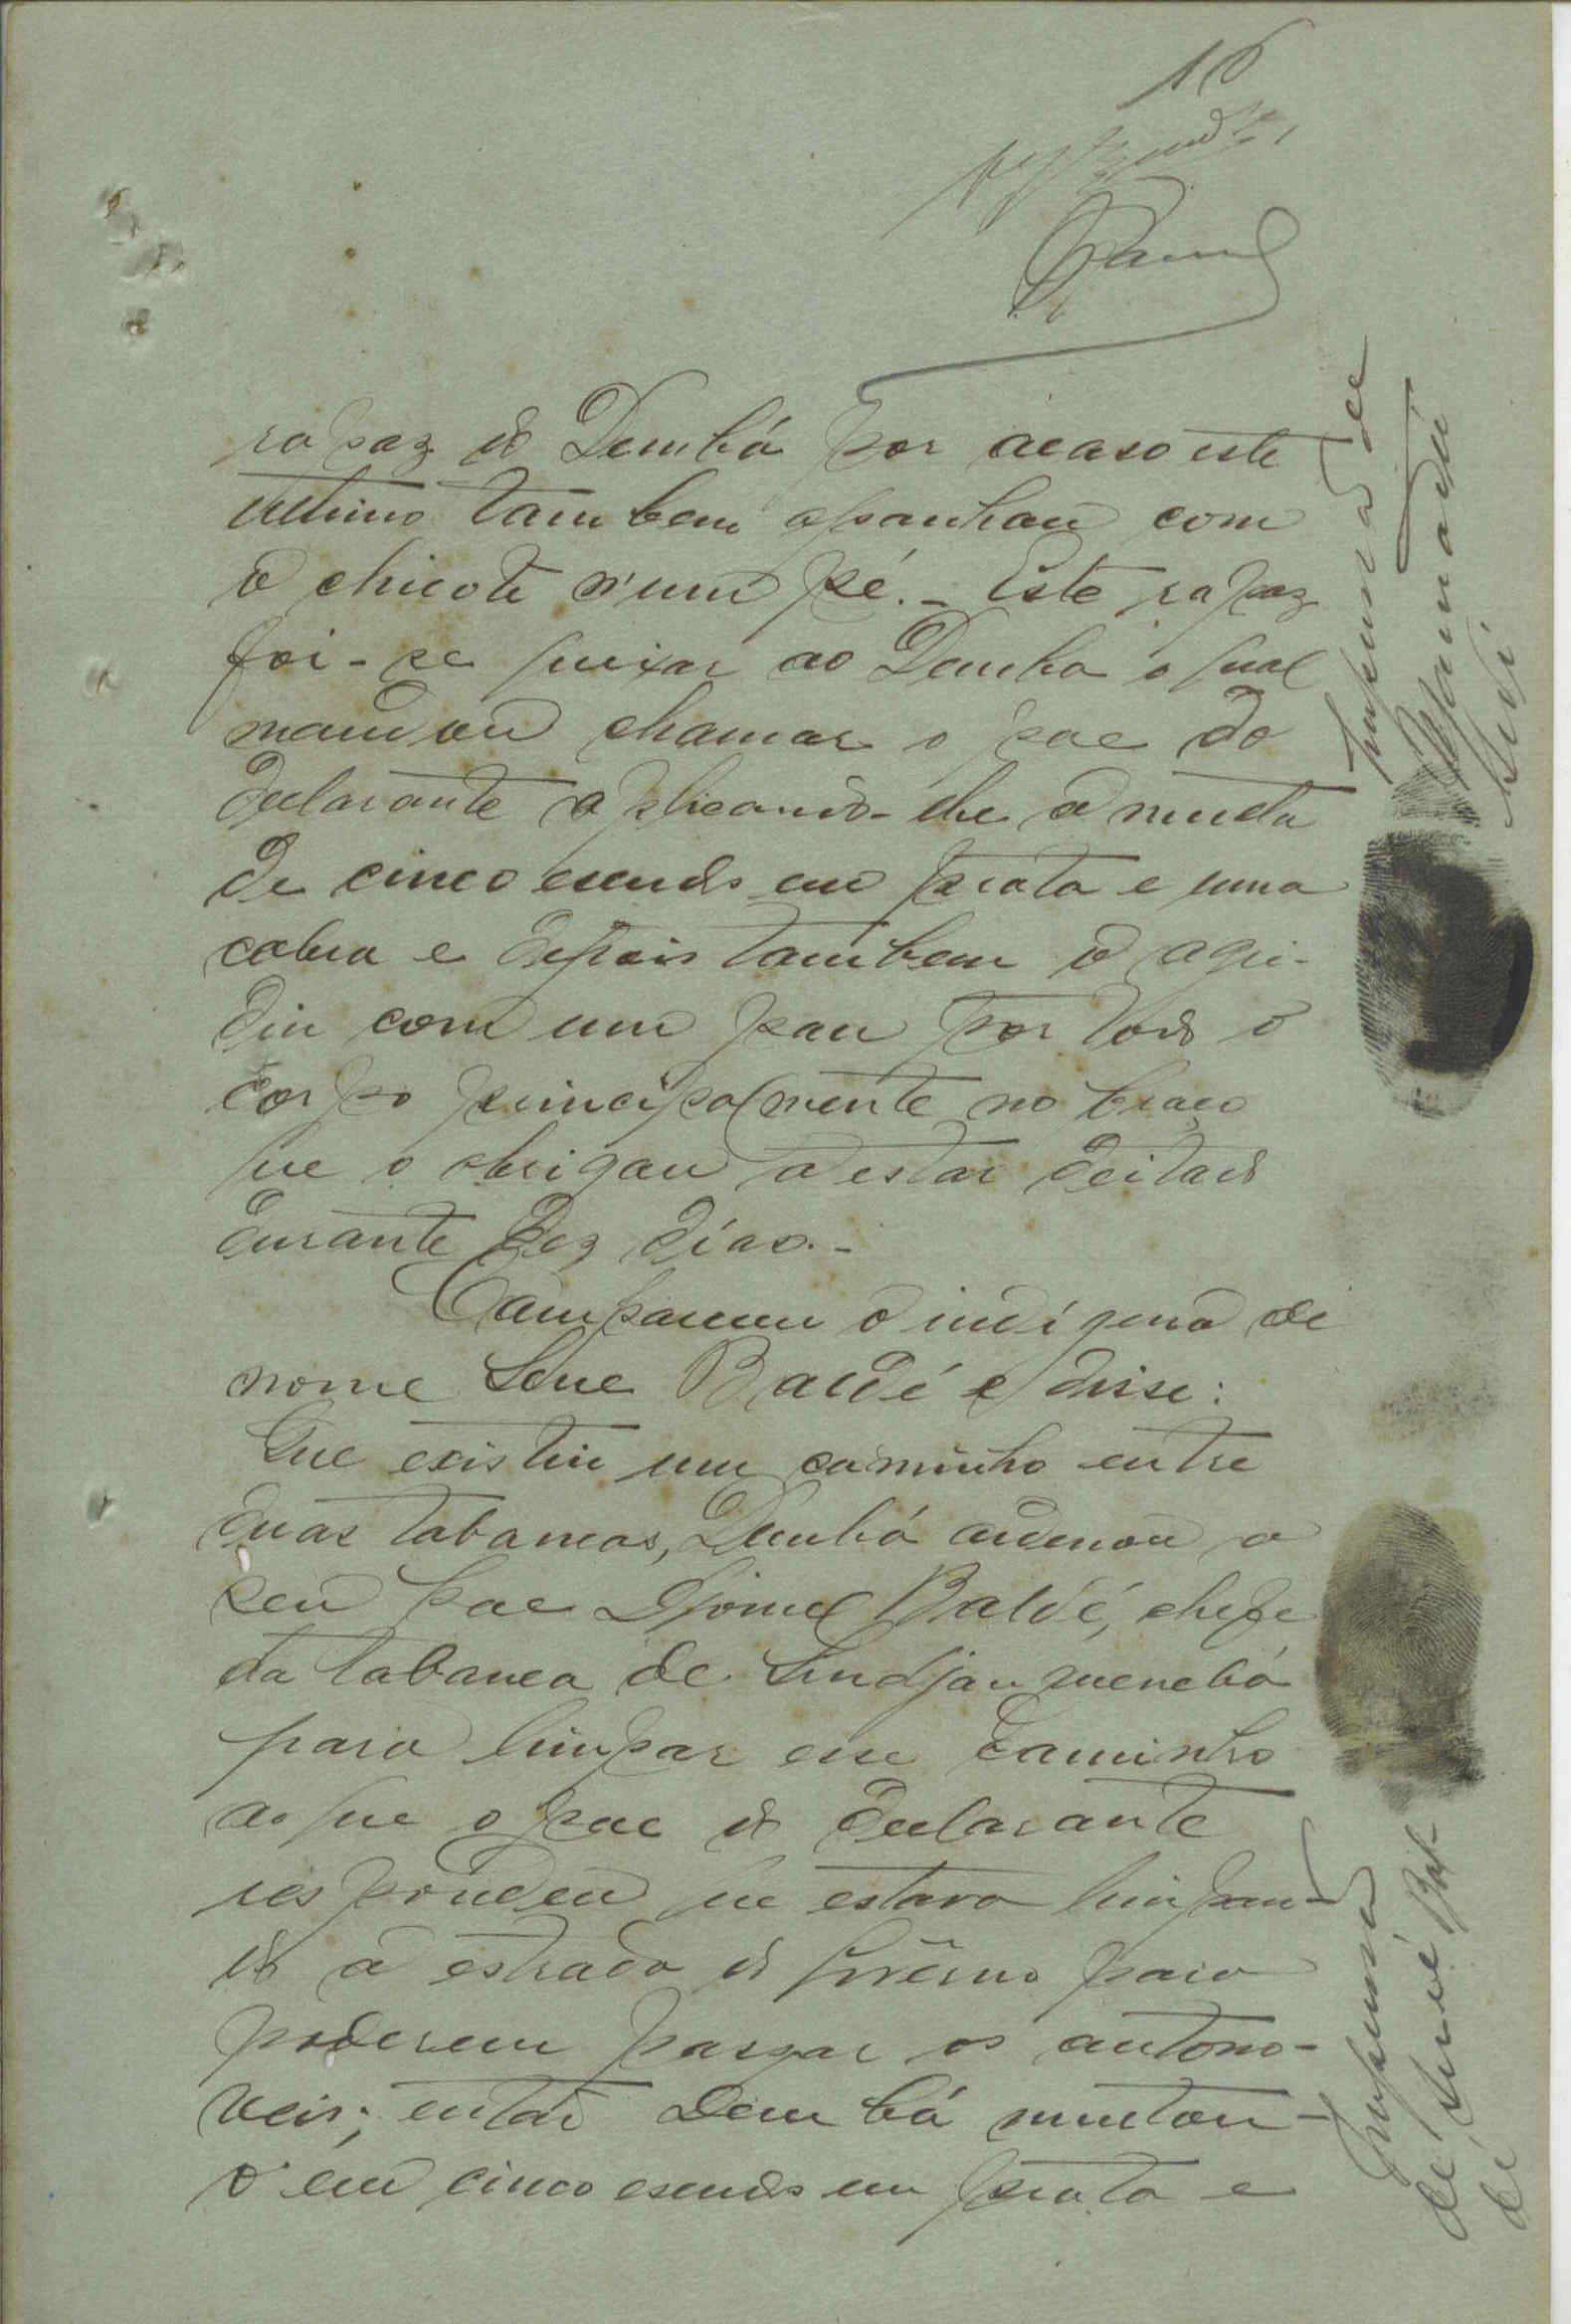 16
rapaz do Dembá por acaso este
ultimo tambem apanhou com
o chicote n'um pé. - Este rapaz
foi-se queixar ao Demba o qual
mandou chamar o pae do
declarante aplicando-lhe a multa
de cinco escudos em prata e uma
cabra e depois tambem o agri-
diu com um pau por todo o
corpo principalmente no braço
que o obrigou a estar deitado
durante dez dias. -
Compareceu o indigena de
nome Sene Baldé e disse:
Que existin um caminho entre
duas tabancas, Dembá ordenou a
seu pae Djomel Baldé, chefe
da tabanca de
para limpar esse caminho
ao que o pae do declarante
respondeu que estava limpan-
do a estrada do govêrno para
poderem passar os automo-
veis; entao Dembá multou-
o em cinco escudos em prata e
Impressao de
Mamadú
Impressao
de Sene Bal-
dé